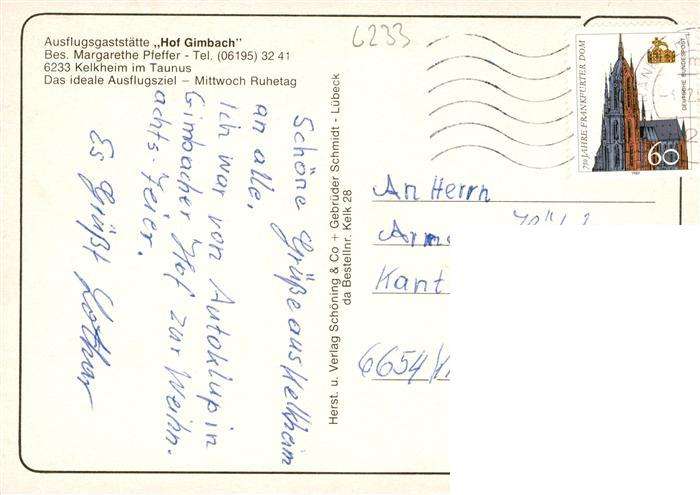 Ausflugsgaststätte „Hof Gimbach"
Bes. Margarethe Pfeffer - Tel. (06195) 32 41
6233 Kelkheim im Taunus
Das ideale Ausflugsziel – Mittwoch Ruhetag
6233
Schöne Grüße aus Kelkheim
an alle,
Ich war von Autoklup in
Gimbacher Hof zur Weihn.
achts-Feier.
Es Grüßt Lothar
Herst. u. Verlag Schöning & Co + Gebrüder Schmidt - Lübeck
da Bestellnr. Kelk 28
750 JAHRE FRANKFURTER DOM
DEUTSCHE BUNDESPOST
60
1989
An Herrn
Kant
6654